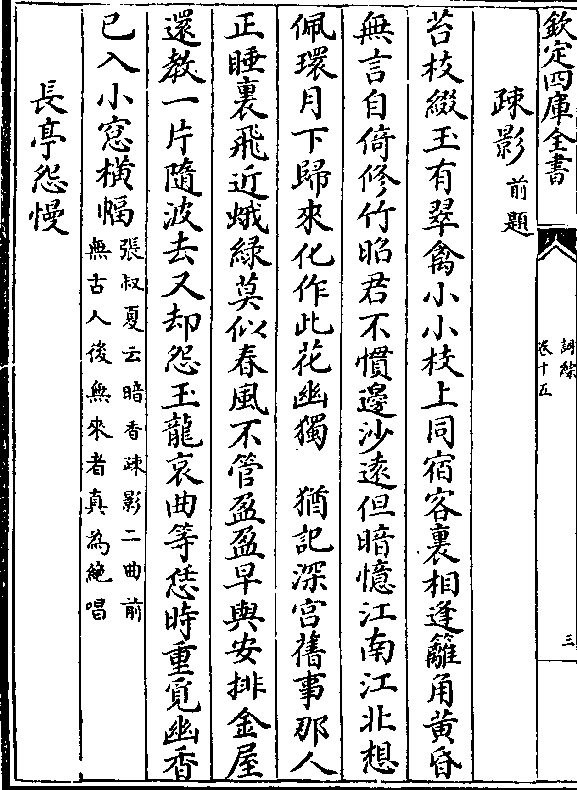 欽定四庫全書
詞綜
卷十五
三
疎影 前題
苔枝綴玉有翠禽小小枝上同宿客裏相逢籬角黄昏
無言自倚修竹昭君不慣邊沙逺但暗憶江南江北想
佩環月下歸來化作此花幽獨　猶記深宫舊事那人
正睡裏飛近蛾緑莫似春風不管盈盈早與安排金屋
還教一片隨波去又却怨玉龍哀曲等恁時重覓幽香
已入小窓横幅 張叔夏云暗香疎影二曲前
無古人後無來者真為絶唱
長亭怨慢